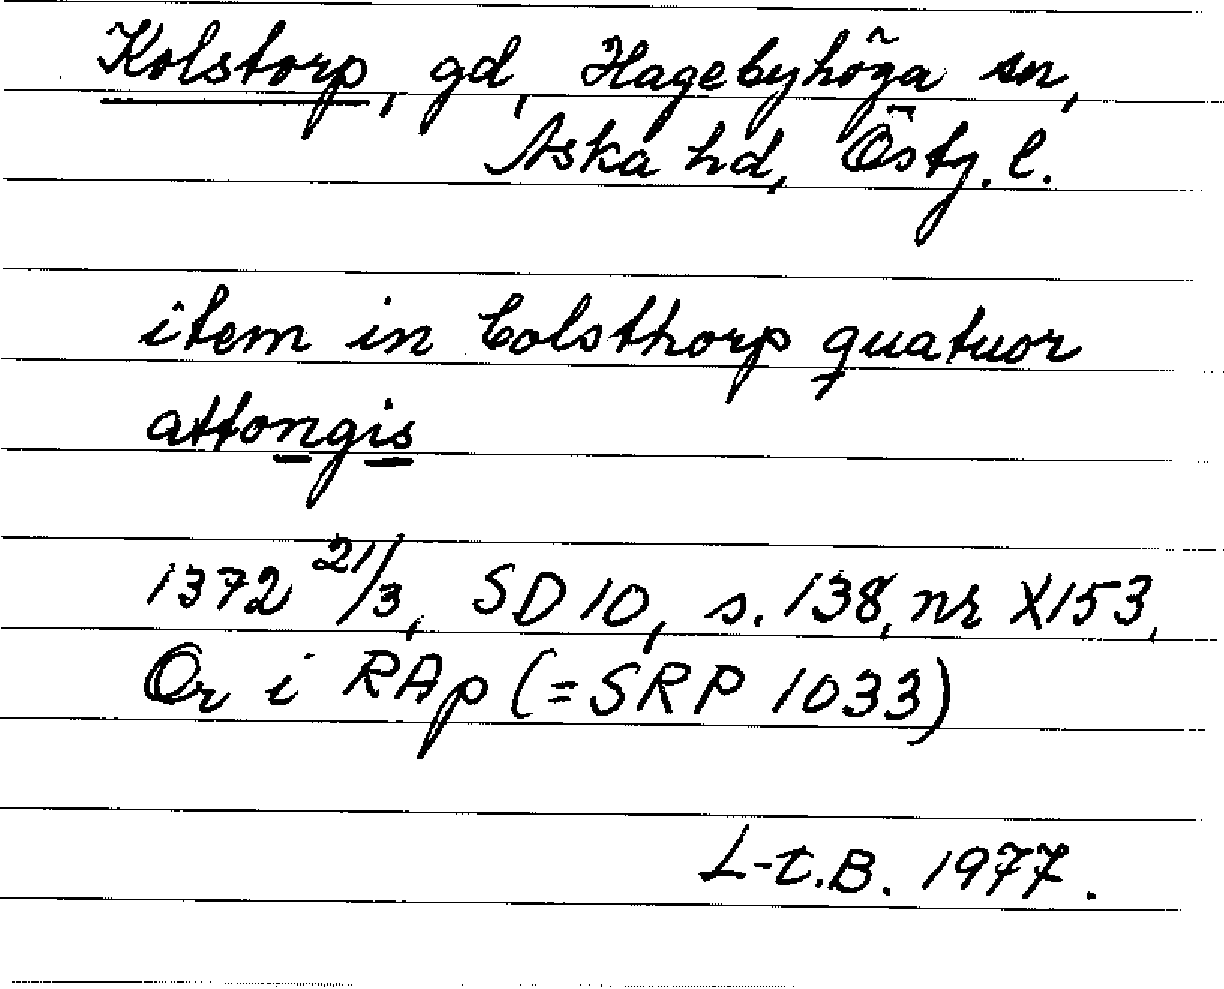 Kolstorp, gd, Hagebyhöga sn,
Aska hd, Östg. l.
item in Colsthorp quatuor
attongis
1372 21/3, SD 10, s. 138, nr X153,
Or i RAp (=SRP 1033)
L-t.B. 1977.